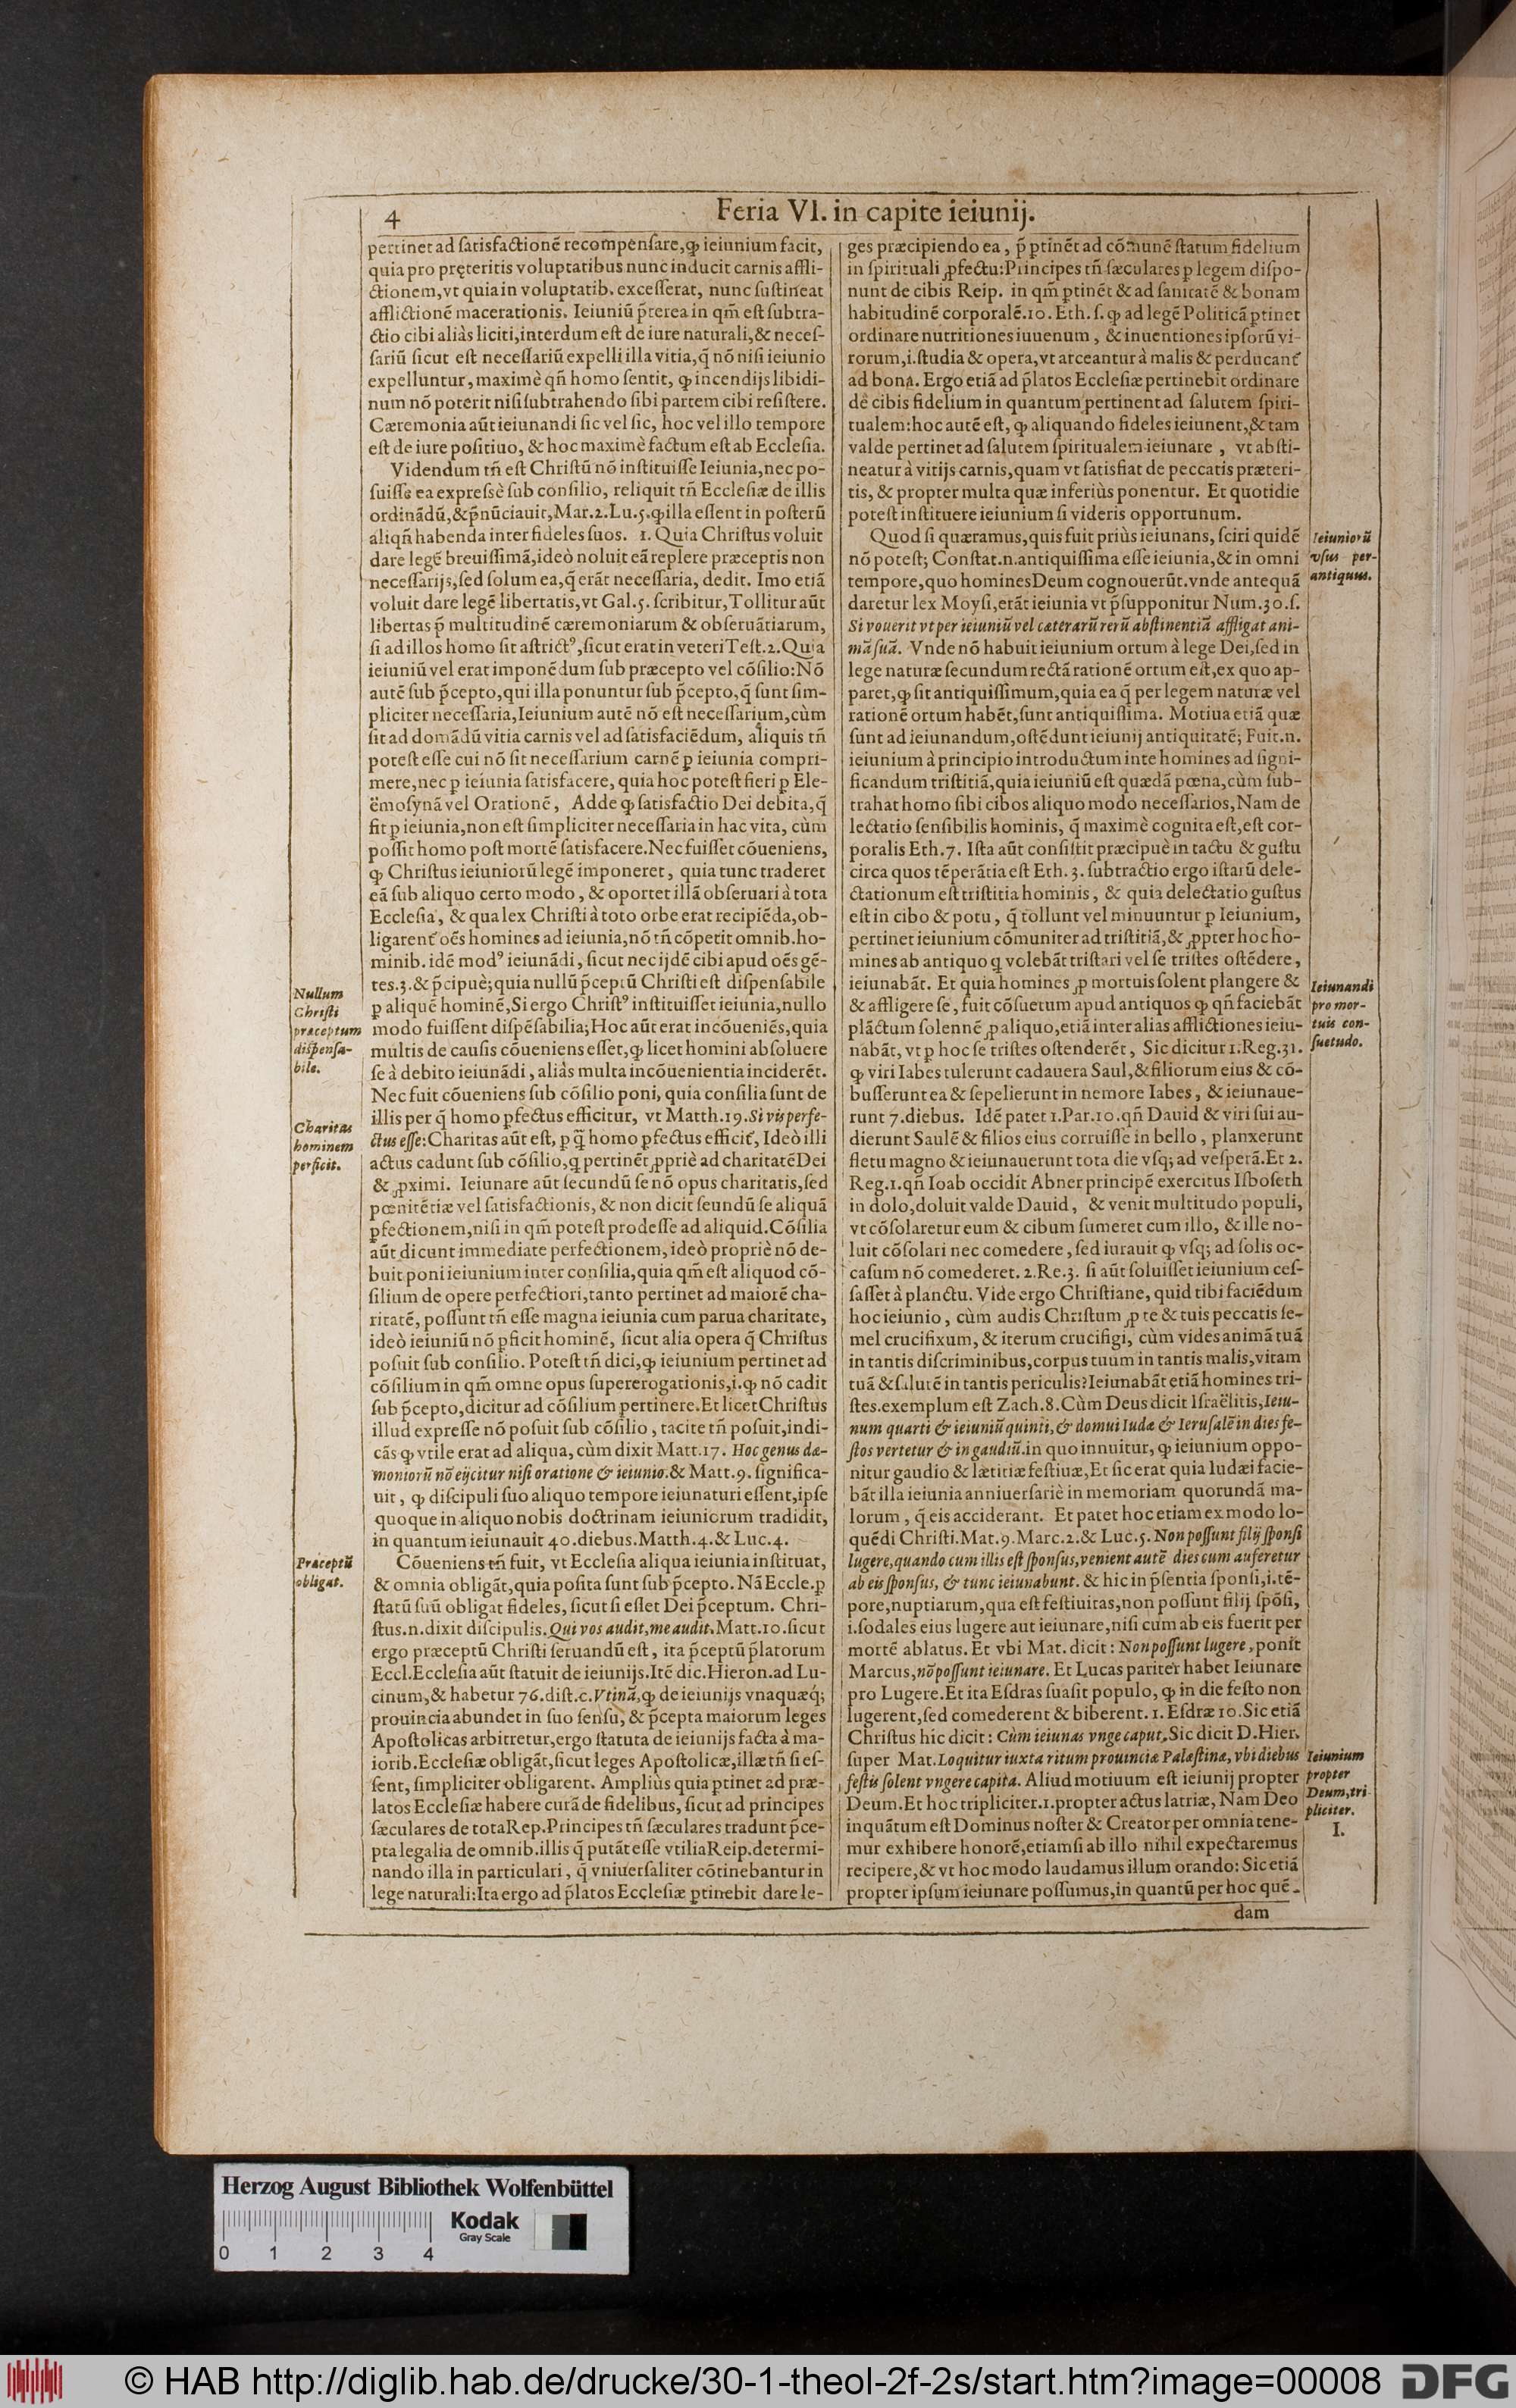 4
Feria VI. in capite ieiunij.
pertinet ad ſatisfactionẽ recompenſare, ꝙ ieiunium facit,
quia pro pręteritis voluptatibus nunc inducit carnis affli-
ctionem, vt quia in voluptatib. exceſſerat, nunc ſuſtineat
afflictionẽ macerationis. Ieiuniũ p̃terea in qm̃ eſt ſubtra-
ctio cibi aliàs liciti, interdum eſt de iure naturali, & neceſ-
ſariũ ſicut eſt neceſſariũ expelli illa vitia, q̃ nõ niſi ieiunio
expelluntur, maximè qñ homo ſentit, ꝙ incendijs libidi-
num nõ poterit niſi ſubtrahendo ſibi partem cibi reſiſtere.
Cæremonia aũt ieiunandi ſic vel ſic, hoc vel illo tempore
eſt de iure poſitiuo, & hoc maximè factum eſt ab Eccleſia.
Videndum tñ eſt Chriſtũ nõ inſtituiſſe Ieiunia, nec po-
ſuiſſe ea expreſsè ſub conſilio, reliquit tñ Eccleſiæ de illis
ordinãdũ, & p̃nũciauit, Mar. 2. Lu. 5. ꝙ illa eſſent in poſterũ
aliqñ habenda inter fideles ſuos. 1. Quia Chriſtus voluit
dare legẽ breuiſſimã, ideò noluit eã replere præceptis non
neceſſarijs, ſed ſolum ea, q̃ erãt neceſſaria, dedit. Imo etiã
voluit dare legẽ libertatis, vt Gal. 5. ſcribitur, Tollitur aũt
libertas p̃ multitudinẽ cæremoniarum & obſeruãtiarum,
ſi ad illos homo ſit aſtrictꝰ, ſicut erat in veteri Teſt. 2. Quia
ieiuniũ vel erat imponẽdum ſub præcepto vel cõſilio: Nõ
autẽ ſub p̃cepto, qui illa ponuntur ſub p̃cepto, q̃ ſunt ſim-
pliciter neceſſaria, Ieiunium autẽ nõ eſt neceſſarium, cùm
ſit ad domãdũ vitia carnis vel ad ſatisfaciẽdum, aliquis tñ
poteſt eſſe cui nõ ſit neceſſarium carnẽ ꝑ ieiunia compri-
mere, nec ꝑ ieiunia ſatisfacere, quia hoc poteſt fieri ꝑ Ele-
ëmoſynã vel Orationẽ, Adde ꝙ ſatisfactio Dei debita, q̃
fit ꝑ ieiunia, non eſt ſimpliciter neceſſaria in hac vita, cùm
poſſit homo poſt mortẽ ſatisfacere. Nec fuiſſet cõueniens,
ꝙ Chriſtus ieiuniorũ legẽ imponeret, quia tunc traderet
eã ſub aliquo certo modo, & oportet illã obſeruari à tota
Eccleſia, & qua lex Chriſti à toto orbe erat recipiẽda, ob-
ligarent̃ oẽs homines ad ieiunia, nõ tñ cõpetit omnib. ho-
minib. idẽ modꝰ ieiunãdi, ſicut nec ijdẽ cibi apud oẽs gẽ-
tes. 3. & p̃cipuè; quia nullũ p̃ceptũ Chriſti eſt diſpenſabile
ꝑ aliquẽ hominẽ, Si ergo Chriſtꝰ inſtituiſſet ieiunia, nullo
modo fuiſſent diſpẽſabilia; Hoc aũt erat incõueniẽs, quia
multis de cauſis cõueniens eſſet, ꝙ licet homini abſoluere
ſe à debito ieiunãdi, aliàs multa incõuenientia inciderẽt.
Nec fuit cõueniens ſub cõſilio poni, quia conſilia ſunt de
illis per q̃ homo ꝑfectus efficitur, vt Matth. 19. Si vis perfe-
ctus eſſe: Charitas aũt eſt, ꝑ q̃ homo ꝑfectus efficit̃, Ideò illi
actus cadunt ſub cõſilio, q̃ pertinẽt ꝓpriè ad charitatẽ Dei
& ꝓximi. Ieiunare aũt ſecundũ ſe nõ opus charitatis, ſed
pœnitẽtiæ vel ſatisfactionis, & non dicit ſeundũ ſe aliquã
ꝑfectionem, niſi in qm̃ poteſt prodeſſe ad aliquid. Cõſilia
aũt dicunt immediate perfectionem, ideò propriè nõ de-
buit poni ieiunium inter conſilia, quia qm̃ eſt aliquod cõ-
ſilium de opere perfectiori, tanto pertinet ad maiorẽ cha-
ritatẽ, poſſunt tñ eſſe magna ieiunia cum parua charitate,
ideò ieiuniũ nõ ꝑficit hominẽ, ſicut alia opera q̃ Chriſtus
poſuit ſub conſilio. Poteſt tñ dici, ꝙ ieiunium pertinet ad
cõſilium in qm̃ omne opus ſupererogationis, i. ꝙ nõ cadit
ſub p̃cepto, dicitur ad cõſilium pertinere. Et licet Chriſtus
illud expreſſe nõ poſuit ſub cõſilio, tacite tñ poſuit, indi-
cãs ꝙ vtile erat ad aliqua, cùm dixit Matt. 17. Hoc genus dæ-
moniorũ nõ eijcitur niſi oratione & ieiunio. & Matt. 9. ſignifica-
uit, ꝙ diſcipuli ſuo aliquo tempore ieiunaturi eſſent, ipſe
quoque in aliquo nobis doctrinam ieiuniorum tradidit,
in quantum ieiunauit 40. diebus. Matth. 4. & Luc. 4.
Cõueniens tñ fuit, vt Eccleſia aliqua ieiunia inſtituat,
& omnia obligãt, quia poſita ſunt ſub p̃cepto. Nã Eccle. ꝑ
ſtatũ ſuũ obligat fideles, ſicut ſi eſſet Dei p̃ceptum. Chri-
ſtus. n. dixit diſcipulis. Qui vos audit, me audit. Matt. 10. ſicut
ergo præceptũ Chriſti ſeruandũ eſt, ita p̃ceptũ p̃latorum
Eccl. Eccleſia aũt ſtatuit de ieiunijs. Itẽ dic. Hieron. ad Lu-
cinum, & habetur 76. diſt. c. Vtinã, ꝙ de ieiunijs vnaquæq́;
prouincia abundet in ſuo ſenſu, & p̃cepta maiorum leges
Apoſtolicas arbitretur, ergo ſtatuta de ieiunijs facta à ma-
iorib. Eccleſiæ obligãt, ſicut leges Apoſtolicæ, illæ tñ ſi eſ-
ſent, ſimpliciter obligarent. Ampliùs quia ꝑtinet ad præ-
latos Eccleſiæ habere curã de fidelibus, ſicut ad principes
ſæculares de tota Rep. Principes tñ ſæculares tradunt p̃ce-
pta legalia de omnib. illis q̃ putãt eſſe vtilia Reip. determi-
nando illa in particulari, q̃ vniuerſaliter cõtinebantur in
lege naturali: Ita ergo ad p̃latos Eccleſiæ ꝑtinebit dare le-
Nullum
Chriſti
præceptum
diſpenſa-
bile.
Charitas
hominem
perficit.
Præceptũ
obligat.
ges præcipiendo ea, p̃ ꝑtinẽt ad cõmunẽ ſtatum fidelium
in ſpirituali ꝓfectu: Principes tñ ſæculares ꝑ legem diſpo-
nunt de cibis Reip. in qm̃ ꝑtinẽt & ad ſanitatẽ & bonam
habitudinẽ corporalẽ. 10. Eth. ſ. ꝙ ad legẽ Politicã ꝑtinet
ordinare nutritiones iuuenum, & inuentiones ipſorũ vi-
rorum, i. ſtudia & opera, vt arceantur à malis & perducant̃
ad bona. Ergo etiã ad p̃latos Eccleſiæ pertinebit ordinare
dẽ cibis fidelium in quantum pertinent ad ſalutem ſpiri-
tualem: hoc autẽ eſt, ꝙ aliquando fideles ieiunent, & tam
valde pertinet ad ſalutem ſpiritualem ieiunare, vt abſti-
neatur à vitijs carnis, quam vt ſatisfiat de peccatis præteri-
tis, & propter multa quæ inferiùs ponentur. Et quotidie
poteſt inſtituere ieiunium ſi videris opportunum.
Quod ſi quæramus, quis fuit priùs ieiunans, ſciri quidẽ
nõ poteſt; Conſtat. n. antiquiſſima eſſe ieiunia, & in omni
tempore, quo homines Deum cognouerũt. vnde antequã
daretur lex Moyſi, erãt ieiunia vt p̃ſupponitur Num. 30. ſ.
Si vouerit vt per ieiuniũ vel cæterarũ rerũ abſtinentiã affligat ani-
mã ſuã. Vnde nõ habuit ieiunium ortum à lege Dei, ſed in
lege naturæ ſecundum rectã rationẽ ortum eſt, ex quo ap-
paret, ꝙ ſit antiquiſſimum, quia ea q̃ per legem naturæ vel
rationẽ ortum habẽt, ſunt antiquiſſima. Motiua etiã quæ
ſunt ad ieiunandum, oſtẽdunt ieiunij antiquitatẽ; Fuit. n.
ieiunium à principio introductum inte homines ad ſigni-
ficandum triſtitiã, quia ieiuniũ eſt quædã pœna, cùm ſub-
trahat homo ſibi cibos aliquo modo neceſſarios, Nam de
lectatio ſenſibilis hominis, q̃ maximè cognita eſt, eſt cor-
poralis Eth. 7. Iſta aũt conſiſtit præcipuè in tactu & guſtu
circa quos tẽperãtia eſt Eth. 3. ſubtractio ergo iſtarũ dele-
ctationum eſt triſtitia hominis, & quia delectatio guſtus
eſt in cibo & potu, q̃ tollunt vel minuuntur ꝑ Ieiunium,
pertinet ieiunium cõmuniter ad triſtitiã, & ꝓpter hoc ho-
mines ab antiquo q̃ volebãt triſtari vel ſe triſtes oſtẽdere,
ieiunabãt. Et quia homines ꝓ mortuis ſolent plangere &
& affligere ſe, fuit cõſuetum apud antiquos ꝙ qñ faciebãt
plãctum ſolennẽ ꝓ aliquo, etiã inter alias afflictiones ieiu-
nabãt, vt ꝑ hoc ſe triſtes oſtenderẽt, Sic dicitur 1. Reg. 31.
ꝙ viri Iabes tulerunt cadauera Saul, & filiorum eius & cõ-
buſſerunt ea & ſepelierunt in nemore Iabes, & ieiunaue-
runt 7. diebus. Idẽ patet 1. Par. 10. qñ Dauid & viri ſui au-
dierunt Saulẽ & filios eius corruiſſe in bello, planxerunt
fletu magno & ieiunauerunt tota die vſq; ad veſperã. Et 2.
Reg. 1. qñ Ioab occidit Abner principẽ exercitus Iſboſeth
in dolo, doluit valde Dauid, & venit multitudo populi,
vt cõſolaretur eum & cibum ſumeret cum illo, & ille no-
luit cõſolari nec comedere, ſed iurauit ꝙ vſq; ad ſolis oc-
caſum nõ comederet. 2. Re. 3. ſi aũt ſoluiſſet ieiunium ceſ-
ſaſſet à planctu. Vide ergo Chriſtiane, quid tibi faciẽdum
hoc ieiunio, cùm audis Chriſtum ꝓ te & tuis peccatis ſe-
mel crucifixum, & iterum crucifigi, cùm vides animã tuã
in tantis diſcriminibus, corpus tuum in tantis malis, vitam
tuã & ſalutẽ in tantis periculis? Ieiunabãt etiã homines tri-
ſtes. exemplum eſt Zach. 8. Cùm Deus dicit Iſraëlitis, Ieiu-
num quarti & ieiuniũ quinti, & domui Iudæ & Ieruſalẽ in dies fe-
ſtos vertetur & in gaudiũ. in quo innuitur, ꝙ ieiunium oppo-
nitur gaudio & lætitiæ feſtiuæ, Et ſic erat quia Iudæi facie-
bãt illa ieiunia anniuerſariè in memoriam quorundã ma-
lorum, q̃ eis acciderant. Et patet hoc etiam ex modo lo-
quẽdi Chriſti. Mat. 9. Marc. 2. & Luc. 5. Non poſſunt filij ſponſi
lugere, quando cum illis eſt ſponſus, venient autẽ dies cum auferetur
ab eis ſponſus, & tunc ieiunabunt. & hic in p̃ſentia ſponſi, i. tẽ-
pore, nuptiarum, qua eſt feſtiuitas, non poſſunt filij ſpõſi,
i. ſodales eius lugere aut ieiunare, niſi cum ab eis fuerit per
mortẽ ablatus. Et vbi Mat. dicit: Non poſſunt lugere, ponit
Marcus, nõ poſſunt ieiunare. Et Lucas pariter habet Ieiunare
pro Lugere. Et ita Eſdras ſuaſit populo, ꝙ in die feſto non
lugerent, ſed comederent & biberent. 1. Eſdræ 10. Sic etiã
Chriſtus hic dicit: Cùm ieiunas vnge caput, Sic dicit D. Hier.
ſuper Mat. Loquitur iuxta ritum prouinciæ Palæſtinæ, vbi diebus
feſtis ſolent vngere capita. Aliud motiuum eſt ieiunij propter
Deum. Et hoc tripliciter. 1. propter actus latriæ, Nam Deo
inquãtum eſt Dominus noſter & Creator per omnia tene-
mur exhibere honorẽ, etiamſi ab illo nihil expectaremus
recipere, & vt hoc modo laudamus illum orando: Sic etiã
propter ipſum ieiunare poſſumus, in quantũ per hoc quẽ-
dam
Ieiuniorũ
vſus per-
antiquus.
Ieiunandi
pro mor-
tuis con-
ſuetudo.
Ieiunium
propter
Deum, tri
pliciter.
I.
Herzog August Bibliothek Wolfenbüttel
Kodak
Gray Scale
0 1 2 3 4
© HAB http://diglib.hab.de/drucke/30-1-theol-2f-2s/start.htm?image=00008
DFG